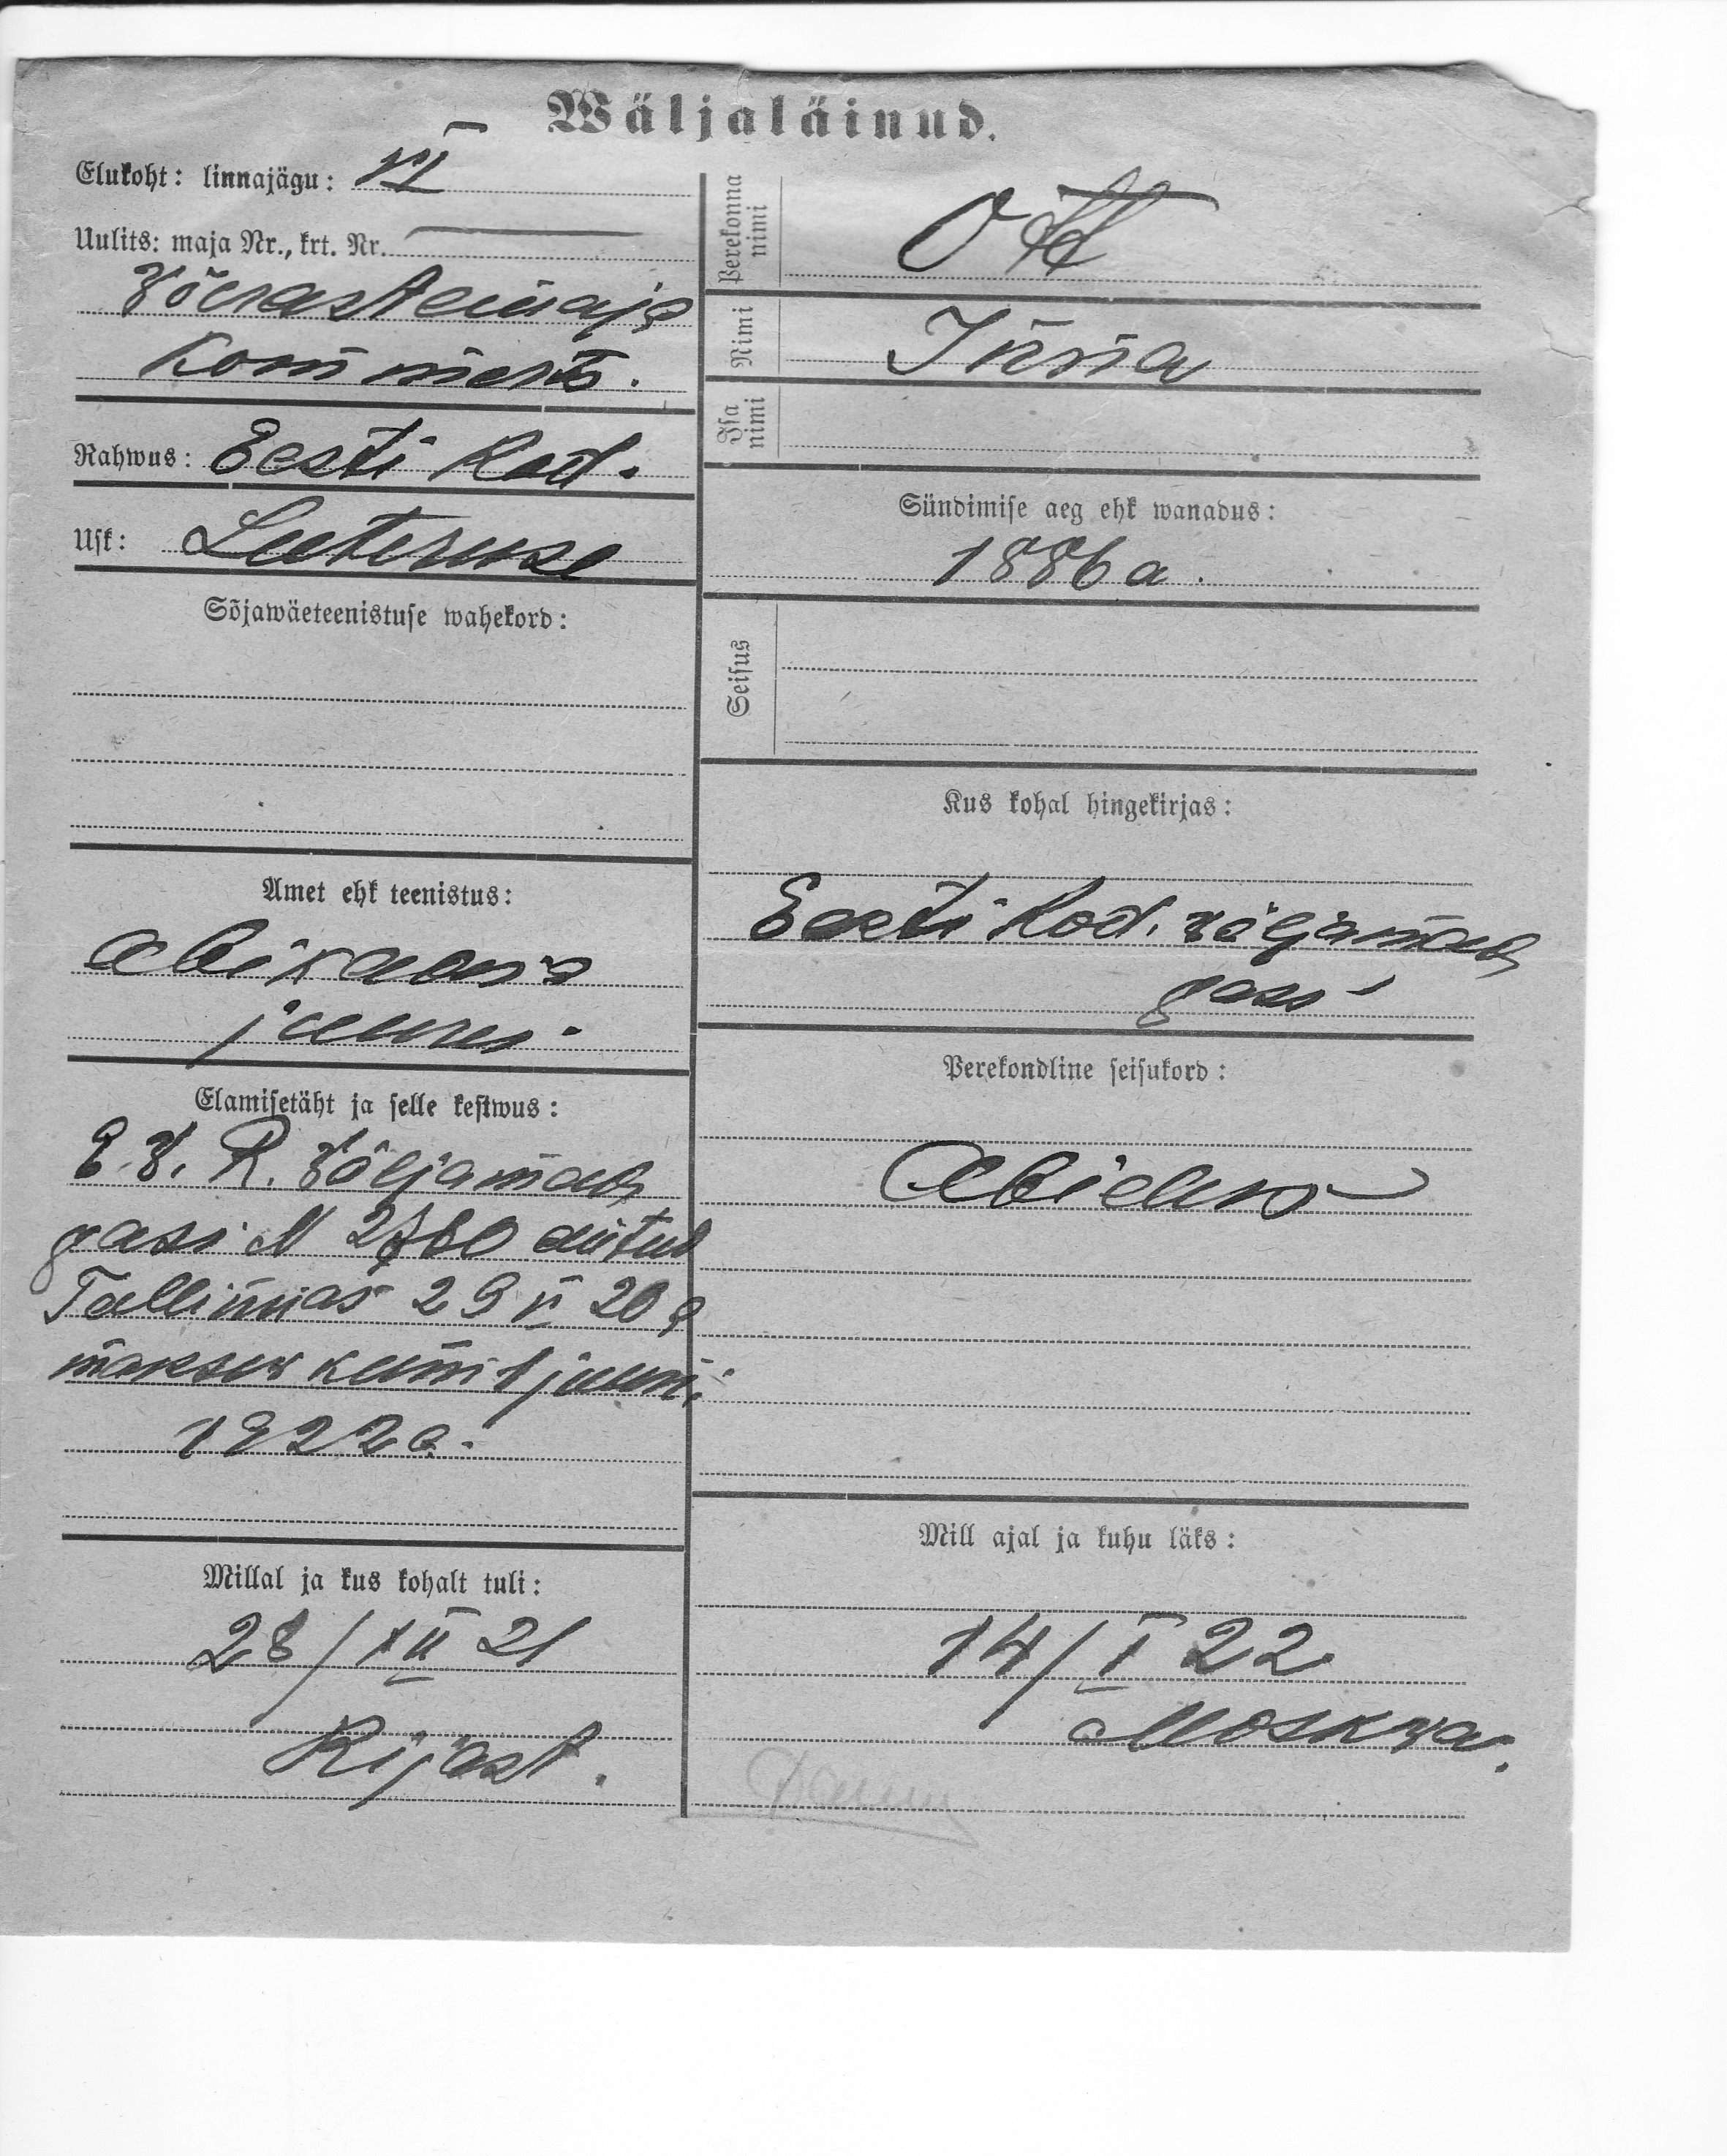 Wäljaläinud.
Elukoht: linnajägu: VI
Uulits: maja Nr., krt. Nr.
Võerastemaja
Kommerts.
Rahwus: Eesti Kod.
Usk: Luteruse
Sõjawäeteenistuse wahekord:
Amet ehk teenistus:
abikaasa
juures.
Elamisetäht ja selle kestwus:
E. V. R. Väljamaa
passi N 2760 antud
Tallinnas 29 V 20 a
maksev kuni 1 juuni
1922 a.
Millal ja kus kohalt tuli:
28/XII 21
Rijast.
Perekonna nimi
Ott
Nimi
Irina
Isa nimi
Sündimise aeg ehk wanadus:
1886 a.
Seisus
Kus kohal hingekirjas:
Eesti Kod. väljamaa
pass
Perekondline seisukord:
Abielus
Mill ajal ja kuhu läks:
14/I 22
Moskva.